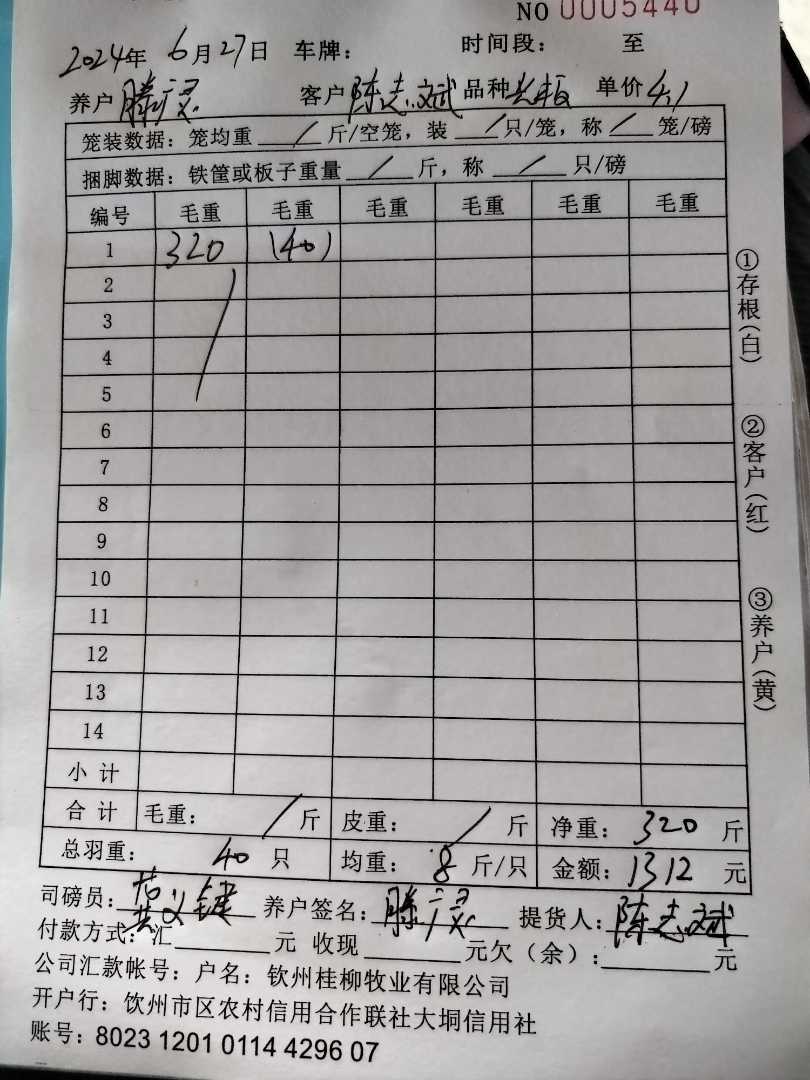 NO 0005440
2024年 6月27日 车牌: 时间段: 至
养户 滕广灵 客户 陈志斌 品种 老板 单价 4.1
笼装数据: 笼均重 / 斤/空笼, 装 / 只/笼, 称 / 笼/磅
捆脚数据: 铁筐或板子重量 / 斤, 称 / 只/磅
编号 毛重 毛重 毛重 毛重 毛重 毛重
1 320 (40)
2
3
4
5
6
7
8
9
10
11
12
13
14
小计
合计 毛重: / 斤 皮重: / 斤 净重: 320 斤
总羽重: 40 只 均重: 8 斤/只 金额: 1312 元
司磅员: 养户签名: 滕广灵 提货人: 陈志斌
付款方式: 汇 元 收现 元欠(余): 元
公司汇款帐号: 户名: 钦州桂柳牧业有限公司
开户行: 钦州市区农村信用合作联社大垌信用社
账号: 8023 1201 0114 4296 07
①存根(白)
②客户(红)
③养户(黄)